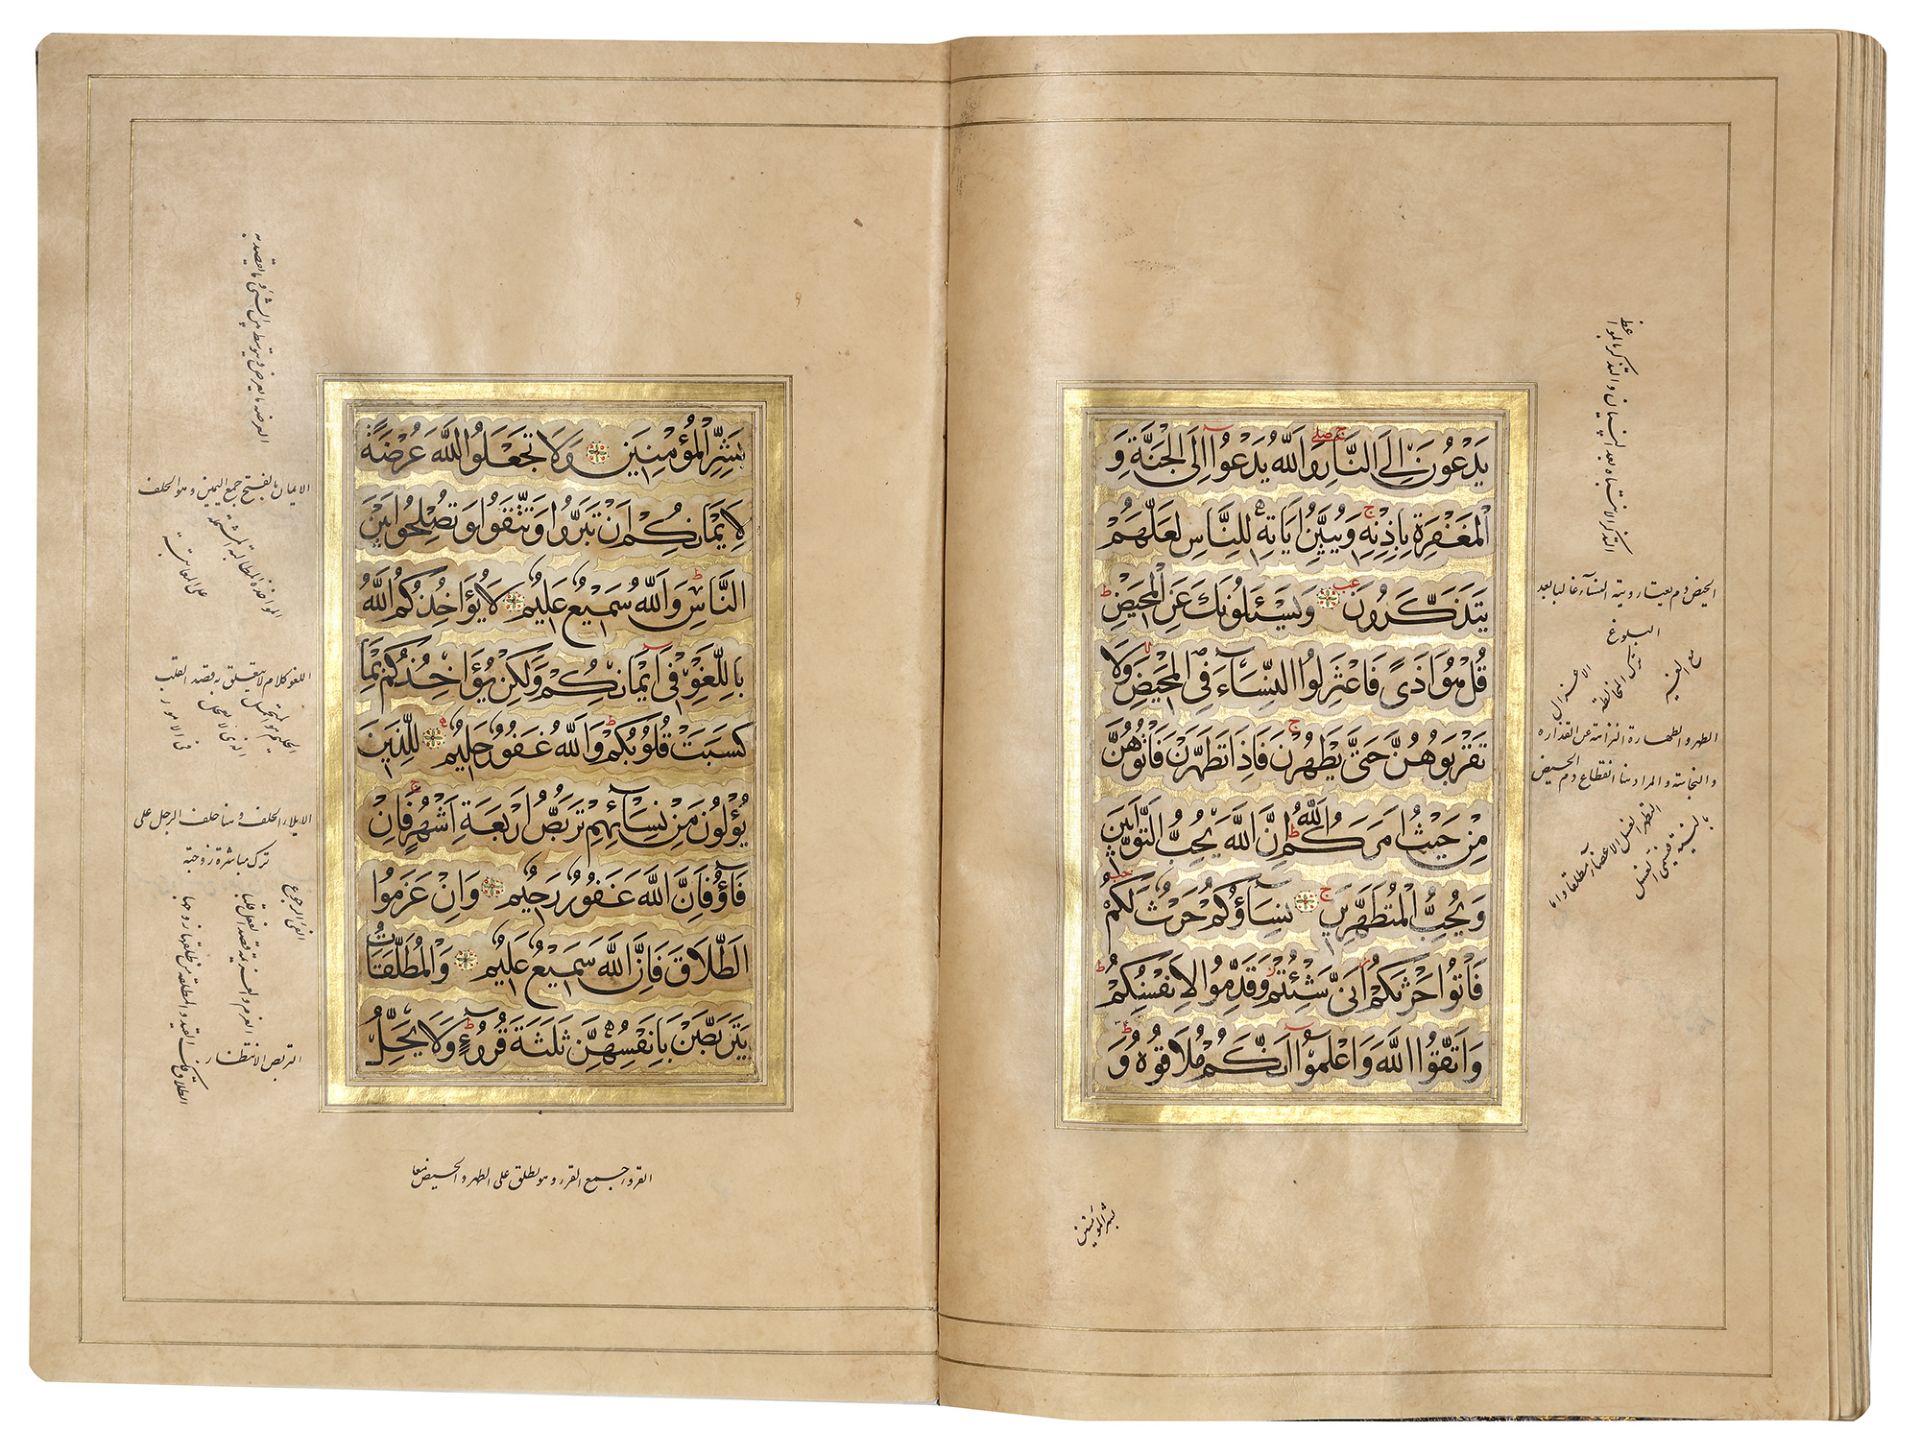 يَدْعُونَ إِلَى النَّارِ وَاللَّهُ يَدْعُوا إِلَى الْجَنَّةِ وَ
الْمَغْفِرَةِ بِإِذْنِهِ وَيُبَيِّنُ آيَاتِهِ لِلنَّاسِ لَعَلَّهُمْ
يَتَذَكَّرُونَ وَيَسْئَلُونَكَ عَنِ الْمَحِيضِ
قُلْ هُوَ أَذًى فَاعْتَزِلُوا النِّسَاءَ فِي الْمَحِيضِ وَلَا
تَقْرَبُوهُنَّ حَتَّى يَطْهُرْنَ فَإِذَا تَطَهَّرْنَ فَأْتُوهُنَّ
مِنْ حَيْثُ أَمَرَكُمُ اللَّهُ إِنَّ اللَّهَ يُحِبُّ التَّوَّابِينَ
وَيُحِبُّ الْمُتَطَهِّرِينَ نِسَاؤُكُمْ حَرْثٌ لَكُمْ
فَأْتُوا حَرْثَكُمْ أَنَّى شِئْتُمْ وَقَدِّمُوا لِأَنْفُسِكُمْ
وَاتَّقُوا اللَّهَ وَاعْلَمُوا أَنَّكُمْ مُلَاقُوهُ وَ
التذكر الاستنباه بعد النسيان والتذكر بالمواعظ
الحيض دم يعتاد رويته النساء غالبا بعد
البلوغ
الاعتزال
ترك المخالطة
الطهر والطهارة النزاهة عن القذارة
والنجاسة والمراد هنا انقطاع دم الحيض
بشر المؤمنين
بَشِّرِ الْمُؤْمِنِينَ وَلَا تَجْعَلُوا اللَّهَ عُرْضَةً
لِأَيْمَانِكُمْ أَنْ تَبَرُّوا وَتَتَّقُوا وَتُصْلِحُوا بَيْنَ
النَّاسِ وَاللَّهُ سَمِيعٌ عَلِيمٌ لَا يُؤَاخِذُكُمُ اللَّهُ
بِاللَّغْوِ فِي أَيْمَانِكُمْ وَلَكِنْ يُؤَاخِذُكُمْ بِمَا
كَسَبَتْ قُلُوبُكُمْ وَاللَّهُ غَفُورٌ حَلِيمٌ لِلَّذِينَ
يُؤْلُونَ مِنْ نِسَائِهِمْ تَرَبُّصُ أَرْبَعَةِ أَشْهُرٍ فَإِنْ
فَاؤُ فَإِنَّ اللَّهَ غَفُورٌ رَحِيمٌ وَإِنْ عَزَمُوا
الطَّلَاقَ فَإِنَّ اللَّهَ سَمِيعٌ عَلِيمٌ وَالْمُطَلَّقَاتُ
يَتَرَبَّصْنَ بِأَنْفُسِهِنَّ ثَلَثَةَ قُرُوءٍ وَلَا يَحِلُّ
الايمان بالفتح جمع اليمين وهو الحلف
اللغو كلام لا يتعلق به بقصد القلب
الايلاء الحلف وهنا حلف الرجل على
ترك مباشرة زوجته
الفئ الرجوع
التربص الانتظار
القروء جمع القرء وهو يطلق على الطهر والحيض معا